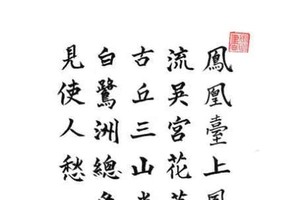 鳳凰臺上鳳
流吳宮花
古丘三山
白鷺洲總
見使人愁